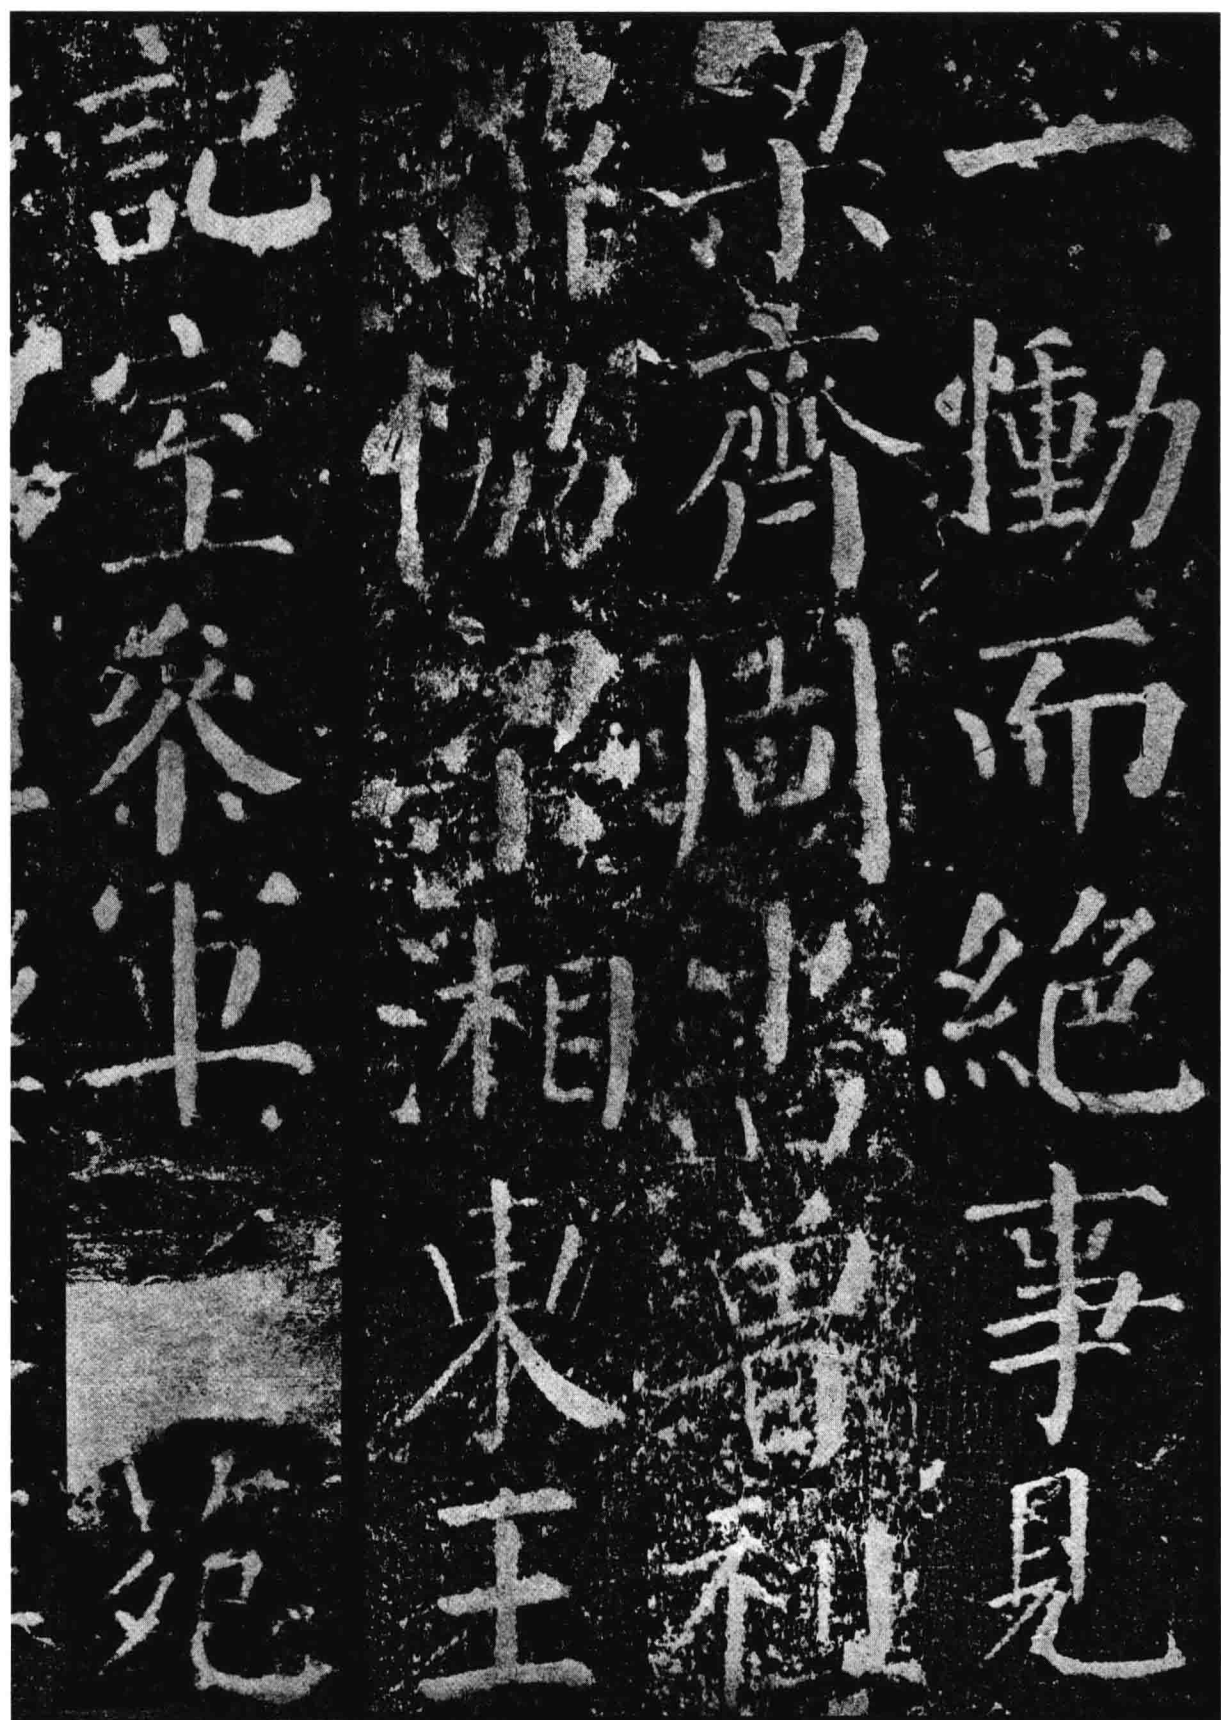 一慟而絕事見
梁齊周書曾祖
諱協梁湘東王
記室參軍苑